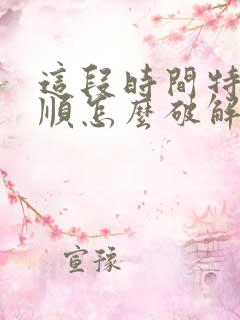 這段時間特
順怎麼破解
宣豫